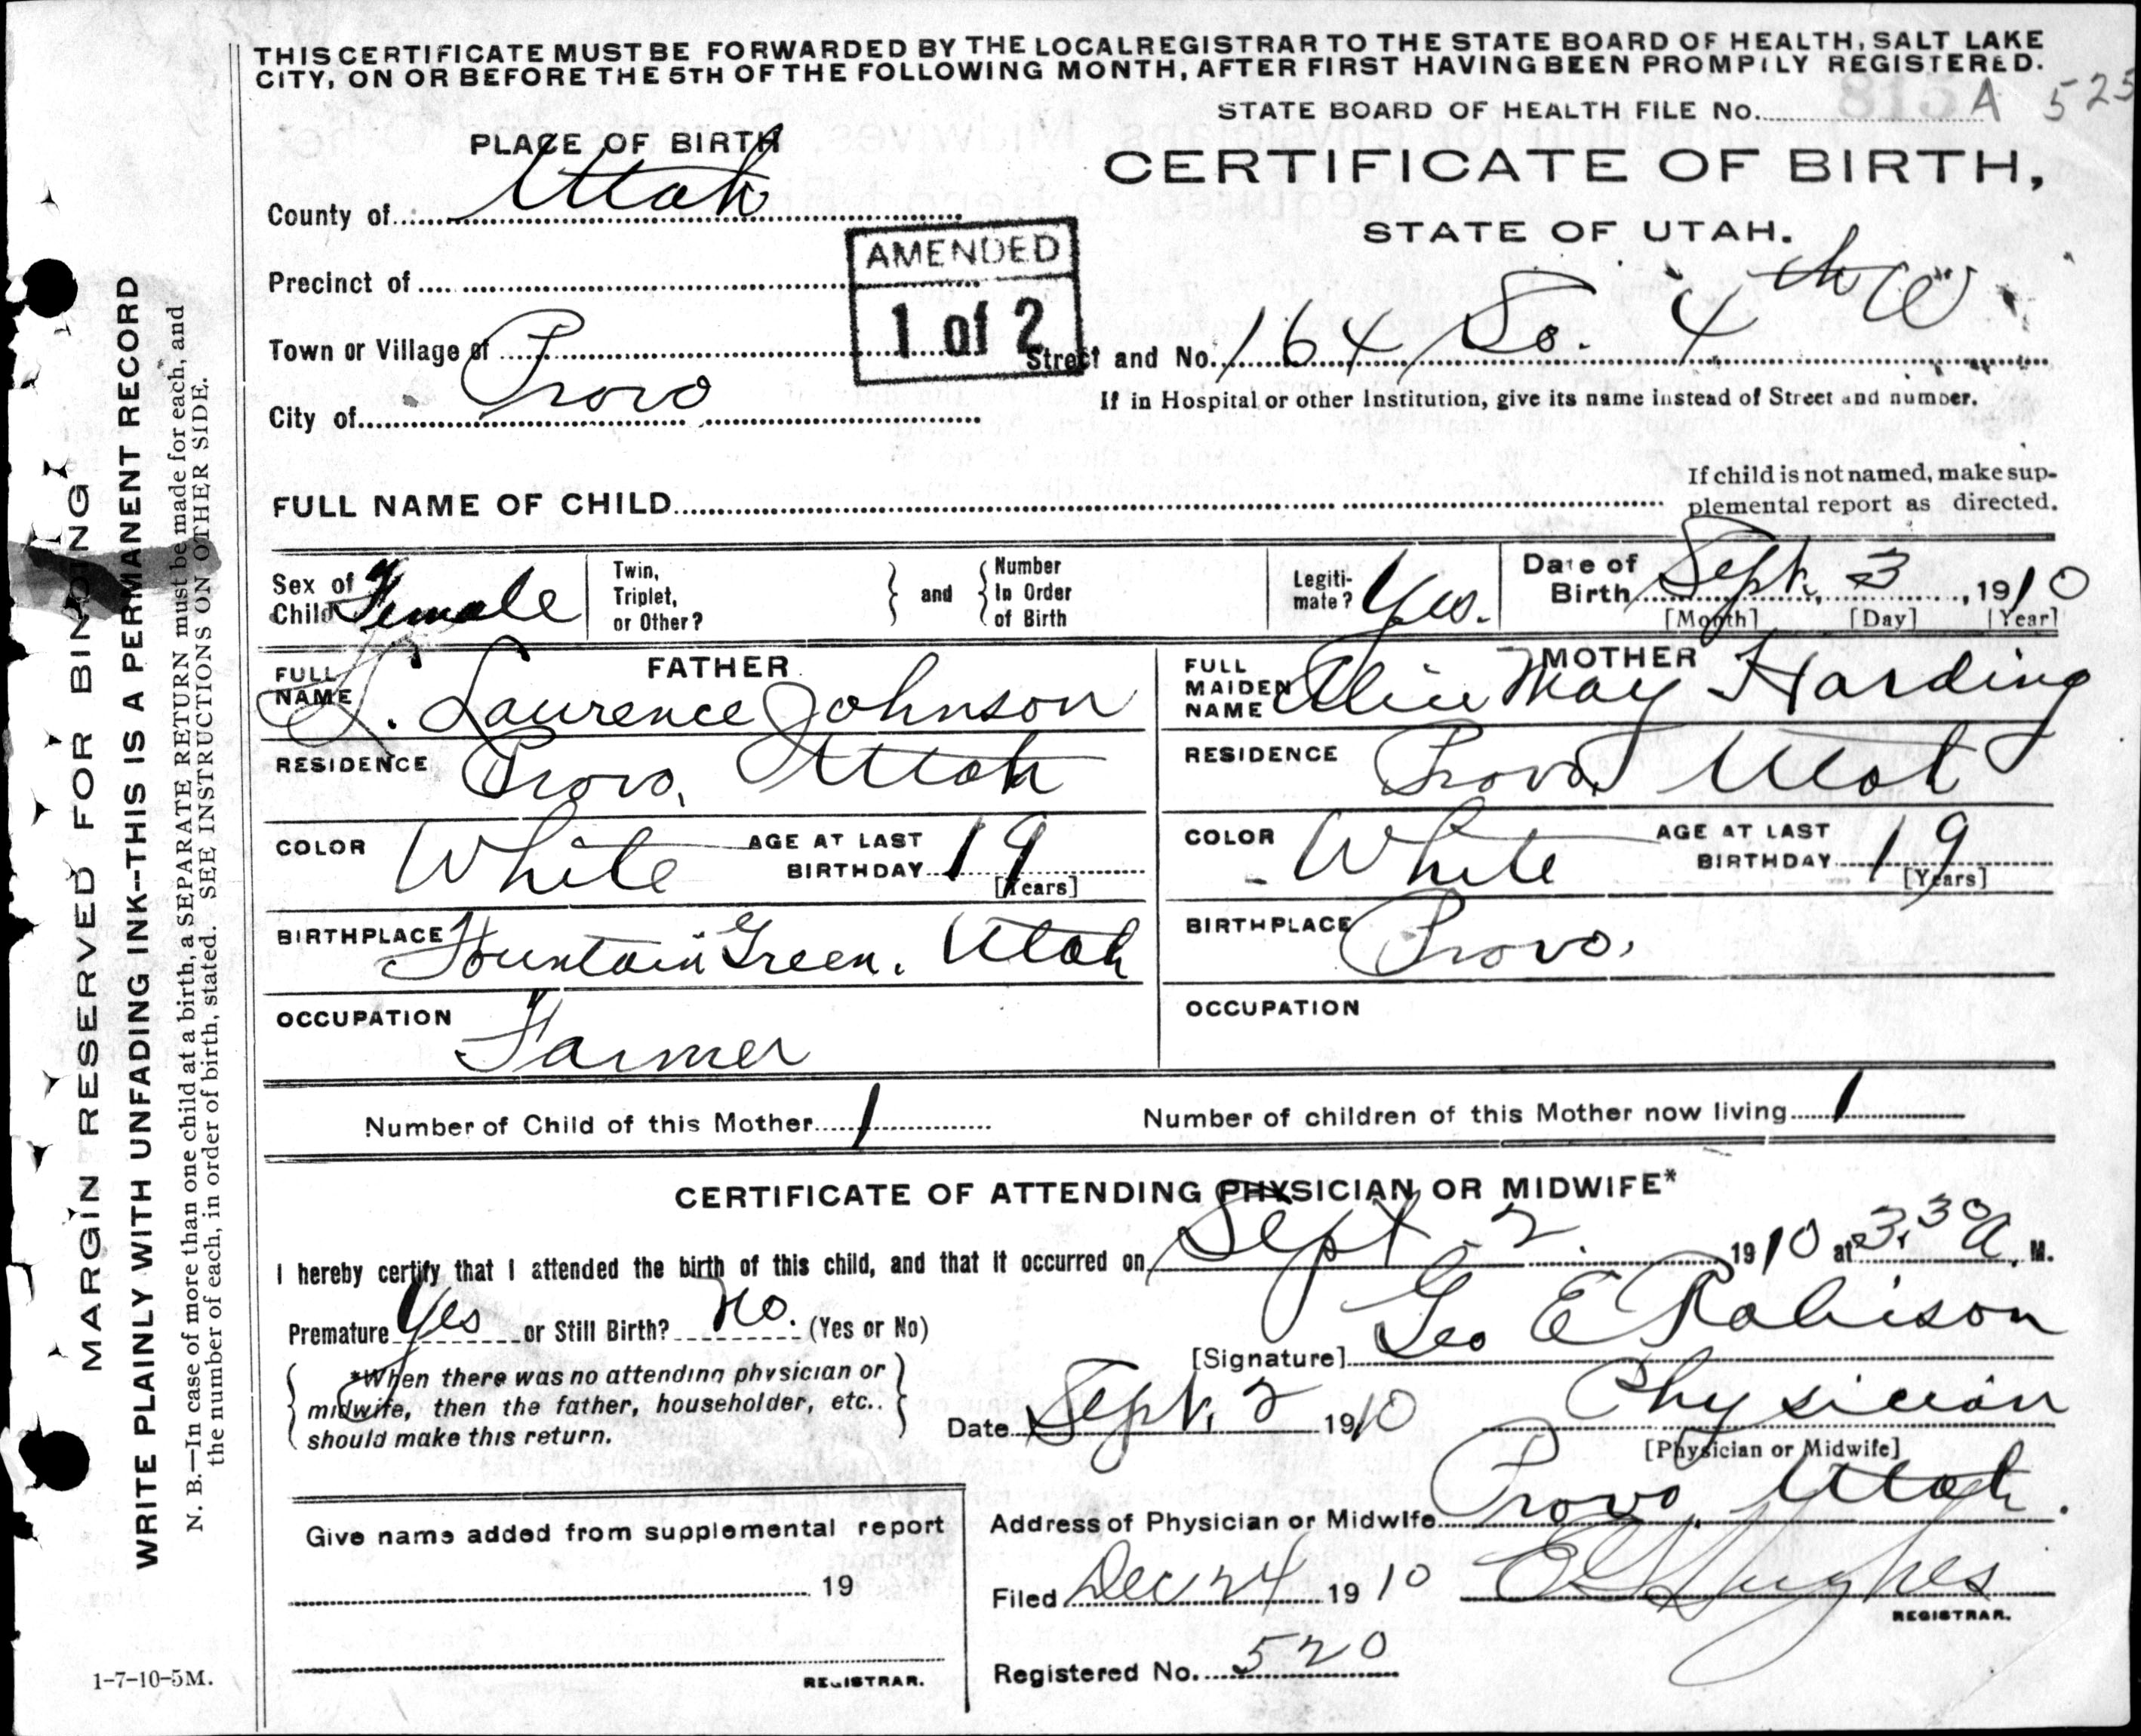 THIS CERTIFICATE MUST BE FORWARDED BY THE LOCAL REGISTRAR TO THE STATE BOARD OF HEALTH, SALT LAKE
CITY, ON OR BEFORE THE 5TH OF THE FOLLOWING MONTH, AFTER FIRST HAVING BEEN PROMPTLY REGISTERED.
STATE BOARD OF HEALTH FILE No. 815 A 525
PLACE OF BIRTH
CERTIFICATE OF BIRTH,
County of Utah
STATE OF UTAH.
AMENDED
1 of 2
Precinct of
Town or Village of
Street and No. 164 So. 4th W
City of Provo
If in Hospital or other Institution, give its name instead of Street and number.
FULL NAME OF CHILD
If child is not named, make sup-
plemental report as directed.
Sex of Child Female
Twin, Triplet, or Other?
and
Number In Order of Birth
Legiti-mate? Yes.
Date of Birth Sept. 3, 1910
[Month] [Day] [Year]
FATHER
FULL NAME L. Laurence Johnson
RESIDENCE Provo, Utah
COLOR White AGE AT LAST BIRTHDAY 19
[Years]
BIRTHPLACE Fountain Green, Utah
OCCUPATION Farmer
MOTHER
FULL MAIDEN NAME Alice May Harding
RESIDENCE Provo, Utah
COLOR White AGE AT LAST BIRTHDAY 19
[Years]
BIRTHPLACE Provo.
OCCUPATION
Number of Child of this Mother 1
Number of children of this Mother now living 1
CERTIFICATE OF ATTENDING PHYSICIAN OR MIDWIFE*
I hereby certify that I attended the birth of this child, and that it occurred on Sept. 2 1910 at 3.30 A. M.
Premature Yes or Still Birth? No. (Yes or No)
[Signature] Geo E Robison
*When there was no attending physician or
midwife, then the father, householder, etc..
should make this return.
Date Sept. 2 1910
Physician
[Physician or Midwife]
Address of Physician or Midwife Provo, Utah.
Give name added from supplemental report
19
REGISTRAR.
Filed Dec 24 1910 E G Hughes
REGISTRAR.
Registered No. 520
1-7-10-5M.
MARGIN RESERVED FOR BINDING
WRITE PLAINLY WITH UNFADING INK--THIS IS A PERMANENT RECORD
N. B.—In case of more than one child at a birth, a SEPARATE RETURN must be made for each, and
the number of each, in order of birth, stated. SEE INSTRUCTIONS ON OTHER SIDE.